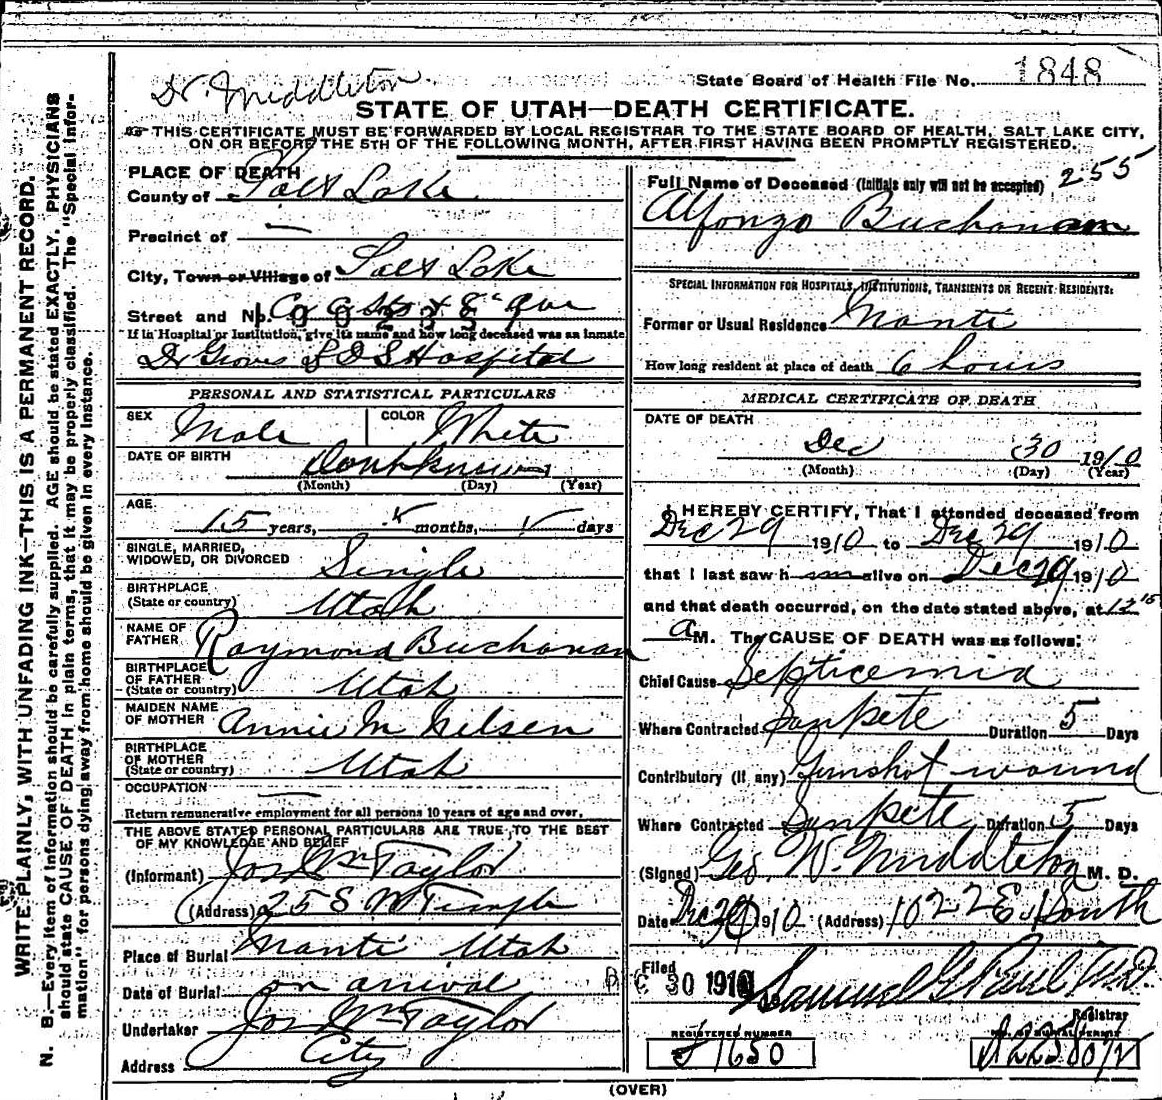 Dr. Middleton
State Board of Health File No. 1848
STATE OF UTAH—DEATH CERTIFICATE.
THIS CERTIFICATE MUST BE FORWARDED BY LOCAL REGISTRAR TO THE STATE BOARD OF HEALTH, SALT LAKE CITY,
ON OR BEFORE THE 5TH OF THE FOLLOWING MONTH, AFTER FIRST HAVING BEEN PROMPTLY REGISTERED.
PLACE OF DEATH
County of Salt Lake
Precinct of —
City, Town or Village of Salt Lake
Street and No. C Sts & 8" Ave
If in Hospital or Institution, give its name and how long deceased was an inmate
Dr Groves L D S Hospital
PERSONAL AND STATISTICAL PARTICULARS
SEX Male COLOR White
DATE OF BIRTH Dont know
(Month) (Day) (Year)
AGE
15 years, months, days
SINGLE, MARRIED,
WIDOWED, OR DIVORCED Single
BIRTHPLACE
(State or country) Utah
NAME OF
FATHER Raymond Buchanan
BIRTHPLACE
OF FATHER
(State or country) Utah
MAIDEN NAME
OF MOTHER Annie M Nelsen
BIRTHPLACE
OF MOTHER
(State or country) Utah
OCCUPATION —
Return remunerative employment for all persons 10 years of age and over.
THE ABOVE STATED PERSONAL PARTICULARS ARE TRUE TO THE BEST
OF MY KNOWLEDGE AND BELIEF
(Informant) Jos Wm Taylor
(Address) 25 S W Temple
Place of Burial Manti Utah
Date of Burial on arrival
Undertaker Jos Wm Taylor
Address City
Full Name of Deceased (Initials only will not be accepted) 255
Alfonzo Buchanan
SPECIAL INFORMATION FOR HOSPITALS, INSTITUTIONS, TRANSIENTS OR RECENT RESIDENTS:
Former or Usual Residence Manti
How long resident at place of death 6 hours
MEDICAL CERTIFICATE OF DEATH
DATE OF DEATH
Dec 30 1910
(Month) (Day) (Year)
I HEREBY CERTIFY, That I attended deceased from
Dec 29 1910 to Dec 29 1910
that I last saw him alive on Dec 29 1910
and that death occurred, on the date stated above, at 12 15
a M. The CAUSE OF DEATH was as follows:
Chief Cause Septicemia
Where Contracted Sanpete Duration 5 Days
Contributory (if any) Gunshot wound
Where Contracted Sanpete Duration 5 Days
(Signed) Geo W. Middleton M. D.
Date Dec 29 1910 (Address) 1022 E. 1 South
Filed DEC 30 1910 Samuel G Paul M.D.
Registrar
REGISTERED NUMBER NO. OF BURIAL PERMIT
J 1650
(OVER)
WRITE PLAINLY, WITH UNFADING INK—THIS IS A PERMANENT RECORD.
N. B.—Every item of information should be carefully supplied. AGE should be stated EXACTLY. PHYSICIANS
should state CAUSE OF DEATH in plain terms, that it may be properly classified. The "Special Infor-
mation" for persons dying away from home should be given in every instance.